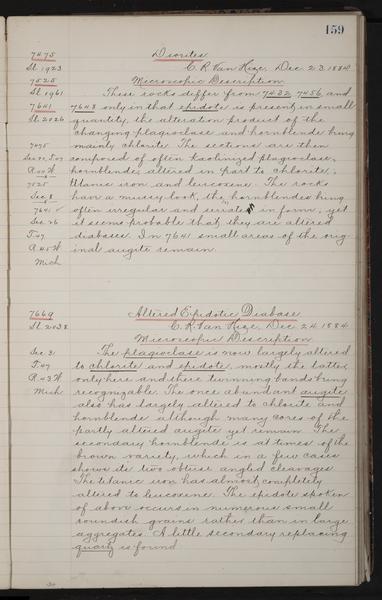 159
7475 Diorites
Sl. 1923 C. R. Van Hise, Dec. 23, 1884
7525 Microscopic Description
Sl. 1961 These rocks differ from 7432, 7456, and
7641 7648 only in that epidote is present in small
Sl. 2026 quantity, the alteration product of the
changing plagioclase and hornblende being
7475 mainly chlorite. The sections are then
composed of often kaolinized plagioclase,
hornblende, altered in part to chlorite,
7525 titanic iron and leucoxene. The rocks
Sec. 8 have a mussy look, the hornblendes being
7641 often irregular and serrate in form, yet
Sec. 26 it seems probable that they are altered
T. 47 diabases. In 7641 small areas of the orig-
R. 45 W inal augite remain.
Mich
7669 Altered Epidotic Diabase
Sl. 2038 C. R. Van Hise, Dec. 24, 1884
Microscopic Description
Sec. 31 The plagioclase is now largely altered
T. 47 to chlorite and epidote, mostly the latter,
R. 43 W only here and there twinning bands being
Mich recognizable. The once abundant augite
also has largely altered to chlorite and
hornblende although many cores of the
partly altered augite yet remain. The
secondary hornblende is at times of the
brown variety, which in a few cases
shows its two obtuse angled cleavages.
The titanic iron has almost completely
altered to leucoxene. The epidote spoken
of above occurs in numerous small
roundish grains rather than in large
aggregates. A little secondary replacing
quartz is found